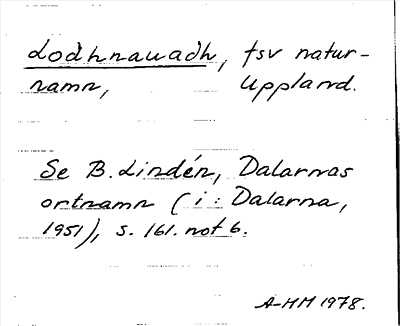 Lodhnauadh, fsv natur-
namn, Uppland.
Se B. Lindén, Dalarnas
ortnamn (i: Dalarna,
1951), s. 161. not 6.
A-HM 1978.